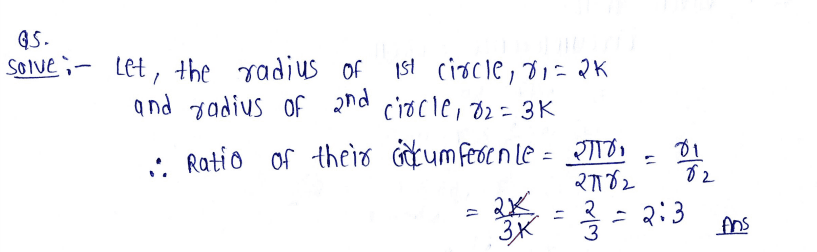 Q5.
Solve :- Let, the radius of 1st circle, r₁ = 2K
and radius of 2nd circle, r₂ = 3K
∴ Ratio of their circumference = 2πr₁/2πr₂ = r₁/r₂
= 2K/3K = 2/3 = 2:3 Ans